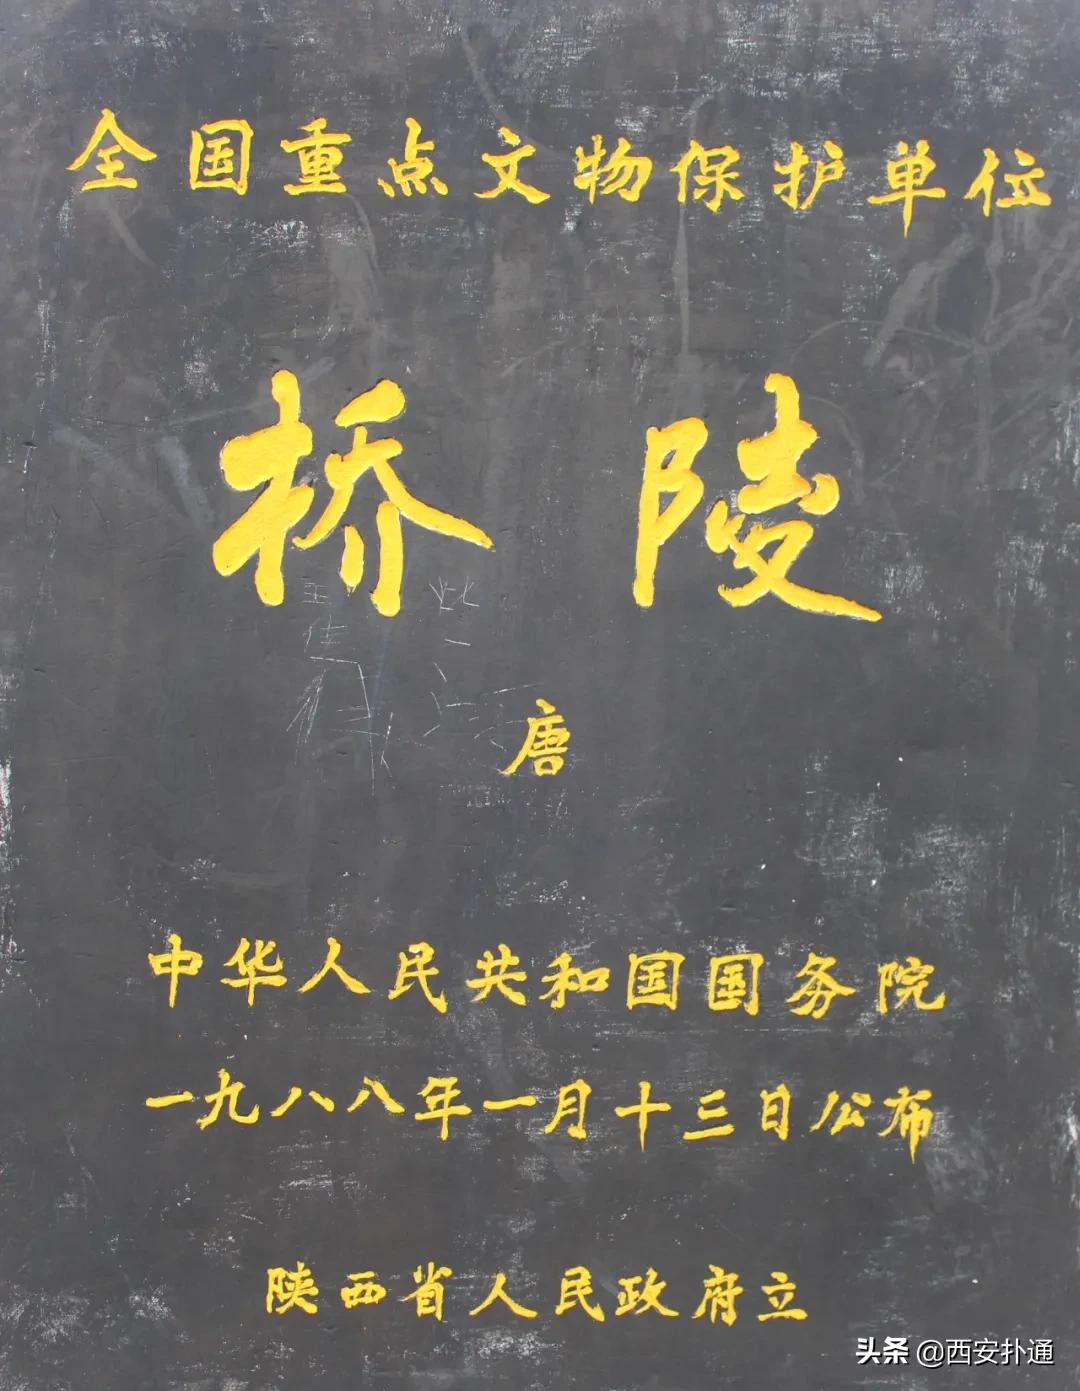 全国重点文物保护单位
桥陵
唐
中华人民共和国国务院
一九八八年一月十三日公布
陕西省人民政府立
头条 @西安扑通